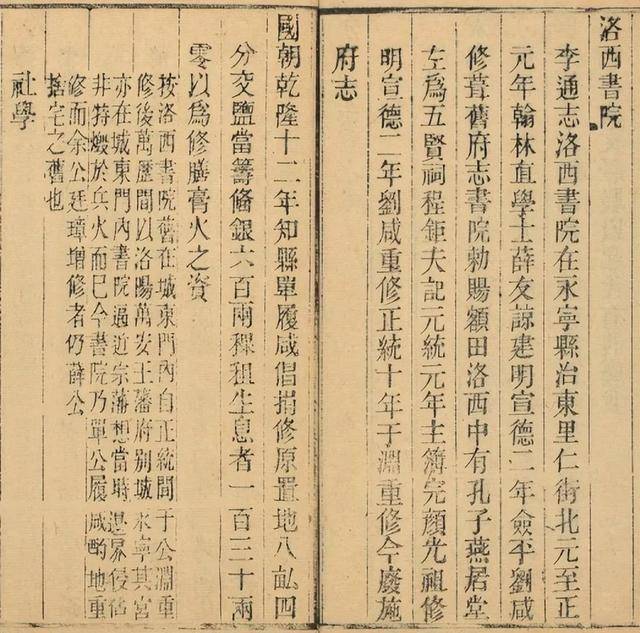 洛西書院
李通志洛西書院在永寧縣治東里仁街北元至正
元年翰林直學士薛友諒建明宣德二年僉事劉咸
修葺舊府志書院勅賜額田洛西中有孔子燕居堂
左爲五賢祠程鉅夫記元統元年主簿完顏光祖修
明宣德二年劉咸重修正統十年于淵重修今廢施
府志
國朝乾隆十二年知縣單履咸倡捐修原置地八畆四
分交鹽當籌備銀六百兩稞租生息者一百三十兩
零以爲修膳膏火之資
按洛西書院舊在城東門內自正統間于公淵重
修後萬歷間以洛陽萬安王藩府別城永寧其宮
亦在城東門內書院逼近宗藩想當時邊界侵佔
非特燬於兵火而已今書院乃單公履咸酌地重
修而余公廷璋增修者仍薛公
捨宅之舊也
社學